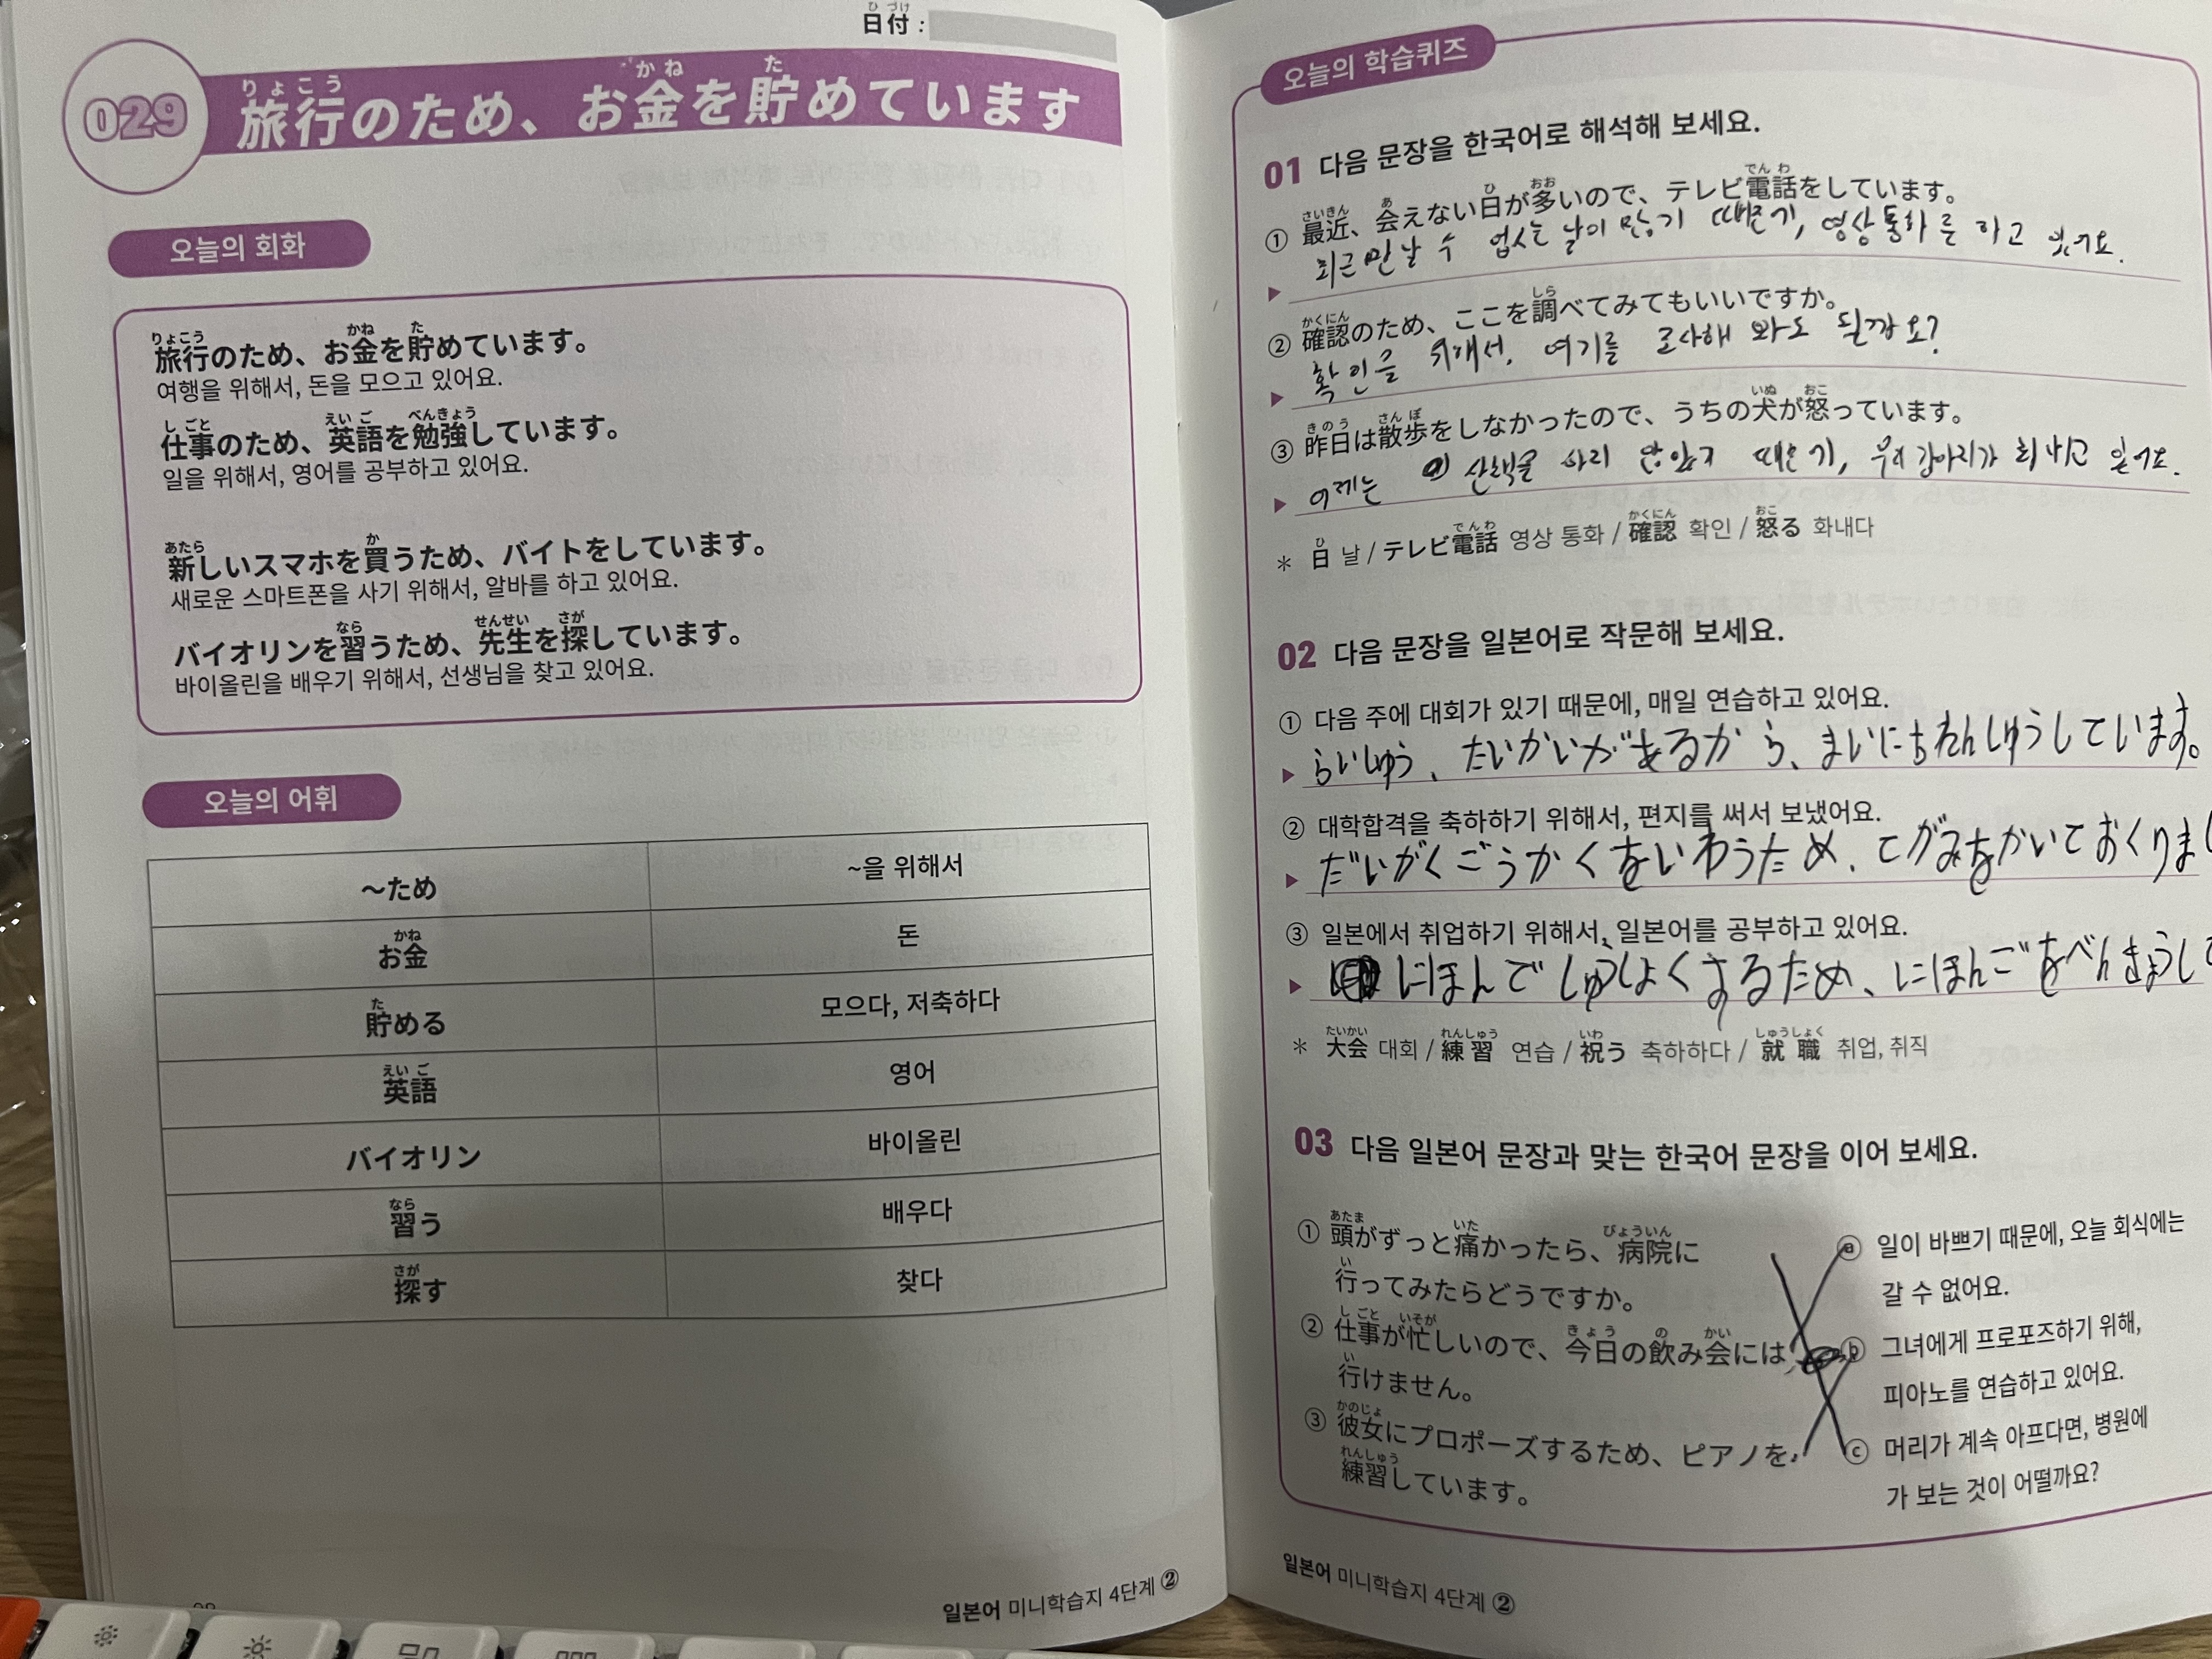 日付 :
ひづけ
029
旅行のため、お金を貯めています
りょこう かね た
오늘의 회화
りょこう かね た
旅行のため、お金を貯めています。
여행을 위해서, 돈을 모으고 있어요.
しごと えいご べんきょう
仕事のため、英語を勉強しています。
일을 위해서, 영어를 공부하고 있어요.
あたら か
新しいスマホを買うため、バイトをしています。
새로운 스마트폰을 사기 위해서, 알바를 하고 있어요.
なら せんせい さが
バイオリンを習うため、先生を探しています。
바이올린을 배우기 위해서, 선생님을 찾고 있어요.
오늘의 어휘
~ため ~을 위해서
かね
お金 돈
た
貯める 모으다, 저축하다
えいご
英語 영어
バイオリン 바이올린
なら
習う 배우다
さが
探す 찾다
일본어 미니학습지 4단계 ②
오늘의 학습퀴즈
01 다음 문장을 한국어로 해석해 보세요.
さいきん あ ひ おお でんわ
① 最近、会えない日が多いので、テレビ電話をしています。
▶ 최근 만날 수 업시는 날이 많기 때문기, 영상통화를 하고 있어요.
かくにん しら
② 確認のため、ここを調べてみてもいいですか。
▶ 확인을 위해서, 여기를 조사해 봐도 될까요?
きのう さんぽ いぬ おこ
③ 昨日は散歩をしなかったので、うちの犬が怒っています。
▶ 어제는 산책을 하지 않았기 때문기, 우리 강아지가 화내고 있어요.
ひ でんわ かくにん おこ
* 日 날 / テレビ電話 영상 통화 / 確認 확인 / 怒る 화내다
02 다음 문장을 일본어로 작문해 보세요.
① 다음 주에 대회가 있기 때문에, 매일 연습하고 있어요.
▶ らいしゅう、たいかいがあるから、まいにちれんしゅうしています。
② 대학합격을 축하하기 위해서, 편지를 써서 보냈어요.
▶ だいがくごうかくをいわうため、てがみをかいておくりまし
③ 일본에서 취업하기 위해서, 일본어를 공부하고 있어요.
▶ にほんでしゅうしょくするため、にほんごをべんきょうして
たいかい れんしゅう いわ しゅうしょく
* 大会 대회 / 練習 연습 / 祝う 축하하다 / 就職 취업, 취직
03 다음 일본어 문장과 맞는 한국어 문장을 이어 보세요.
あたま いた びょういん
① 頭がずっと痛かったら、病院に
い
行ってみたらどうですか。
しごと いそが きょう の かい
② 仕事が忙しいので、今日の飲み会には
い
行けません。
かのじょ
③ 彼女にプロポーズするため、ピアノを
れんしゅう
練習しています。
ⓐ 일이 바쁘기 때문에, 오늘 회식에는
갈 수 없어요.
ⓑ 그녀에게 프로포즈하기 위해,
피아노를 연습하고 있어요.
ⓒ 머리가 계속 아프다면, 병원에
가 보는 것이 어떨까요?
일본어 미니학습지 4단계 ②